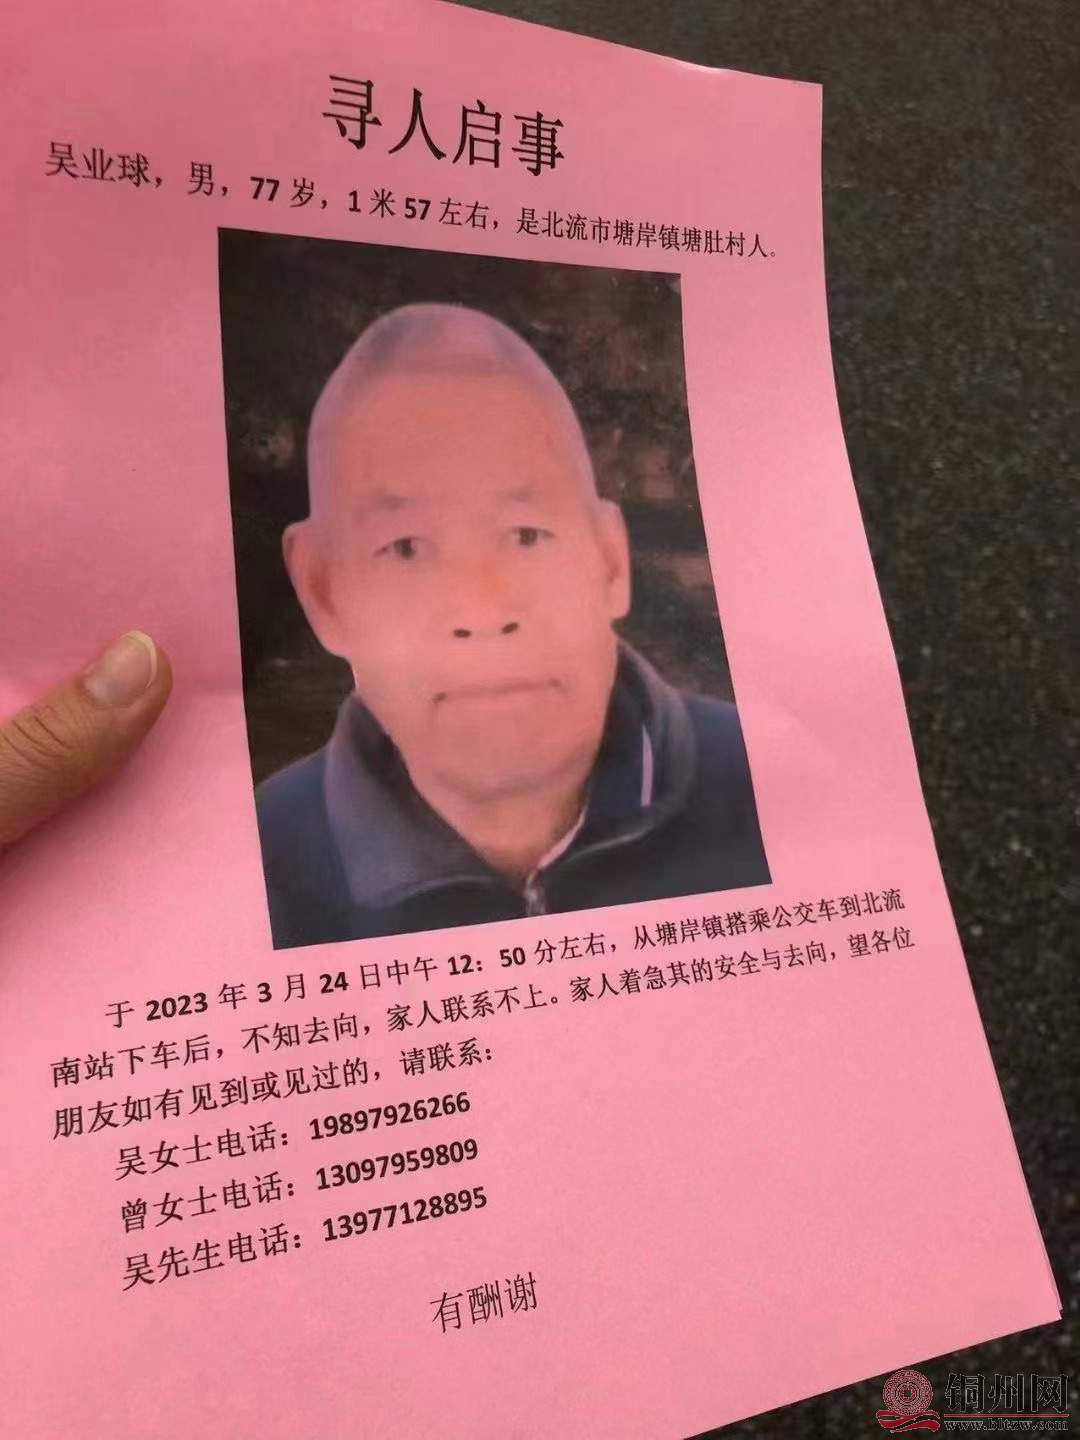 寻人启事
吴业球，男，77岁，1米57左右，是北流市塘岸镇塘肚村人。
于2023年3月24日中午12：50分左右，从塘岸镇搭乘公交车到北流
南站下车后，不知去向，家人联系不上。家人着急其的安全与去向，望各位
朋友如有见到或见过的，请联系：
吴女士电话：19897926266
曾女士电话：13097959809
吴先生电话：13977128895
有酬谢
铜州网
www.bltzw.com